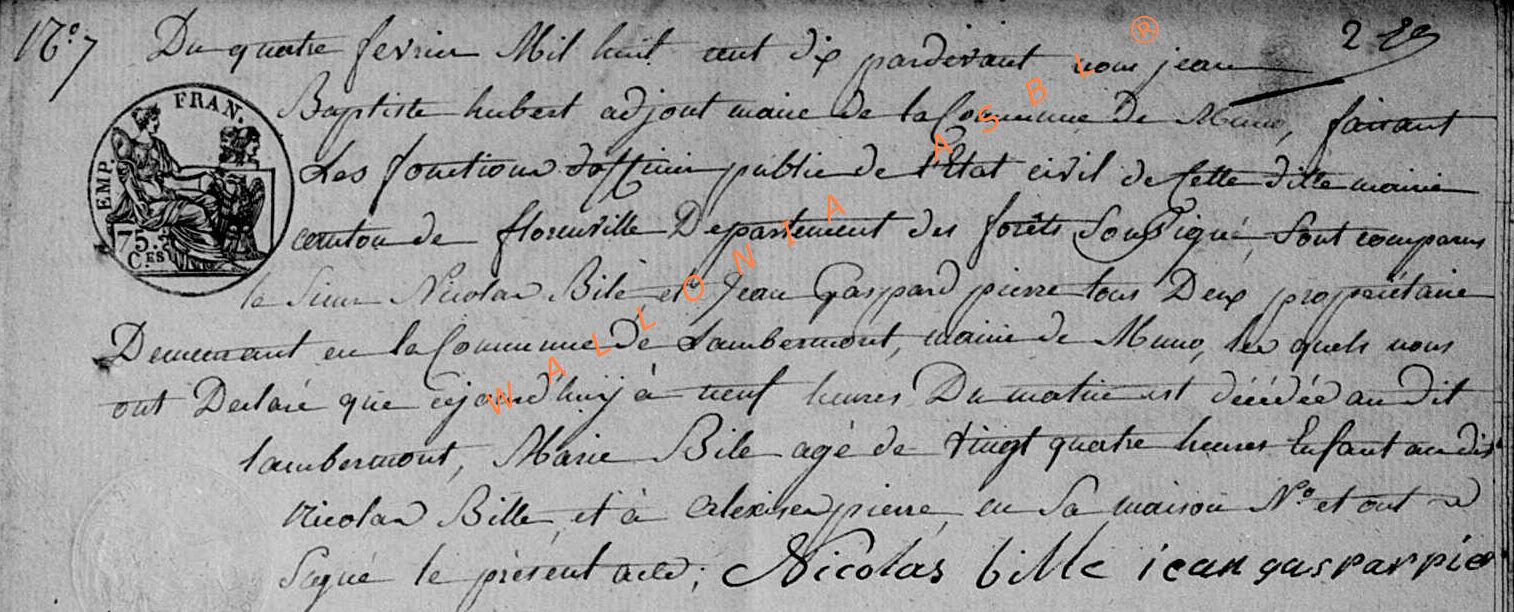 N.º 7 Du quatre fevrier Mil huit cent dix pardevant nous jean
2
Baptiste hubert adjoint maire de la Commune de Muno, faisant
EMP. FRAN.
75.
C.ES
Les fonctions d'officier public de l'Etat civil de Cette ditte mairie
canton de florenville Departement des forêts Soussigné, Sont comparus
le Sieur Nicolas Bile et Jean Gaspard pierre tous Deux propriétaire
Demeurant en la Commune de Lambermont, mairie de Muno, les quels nous
ont Declaré que cejourd'huy à neuf heures Du matin est décédée au dit
lambermont, Marie Bile agé de vingt quatre heures Enfant audis
Nicolas Bille, et à pierre, en Sa maison N.º et ont
Signé le présent acte; Nicolas bille iean gaspar pier
WALLONIA ASBL ®